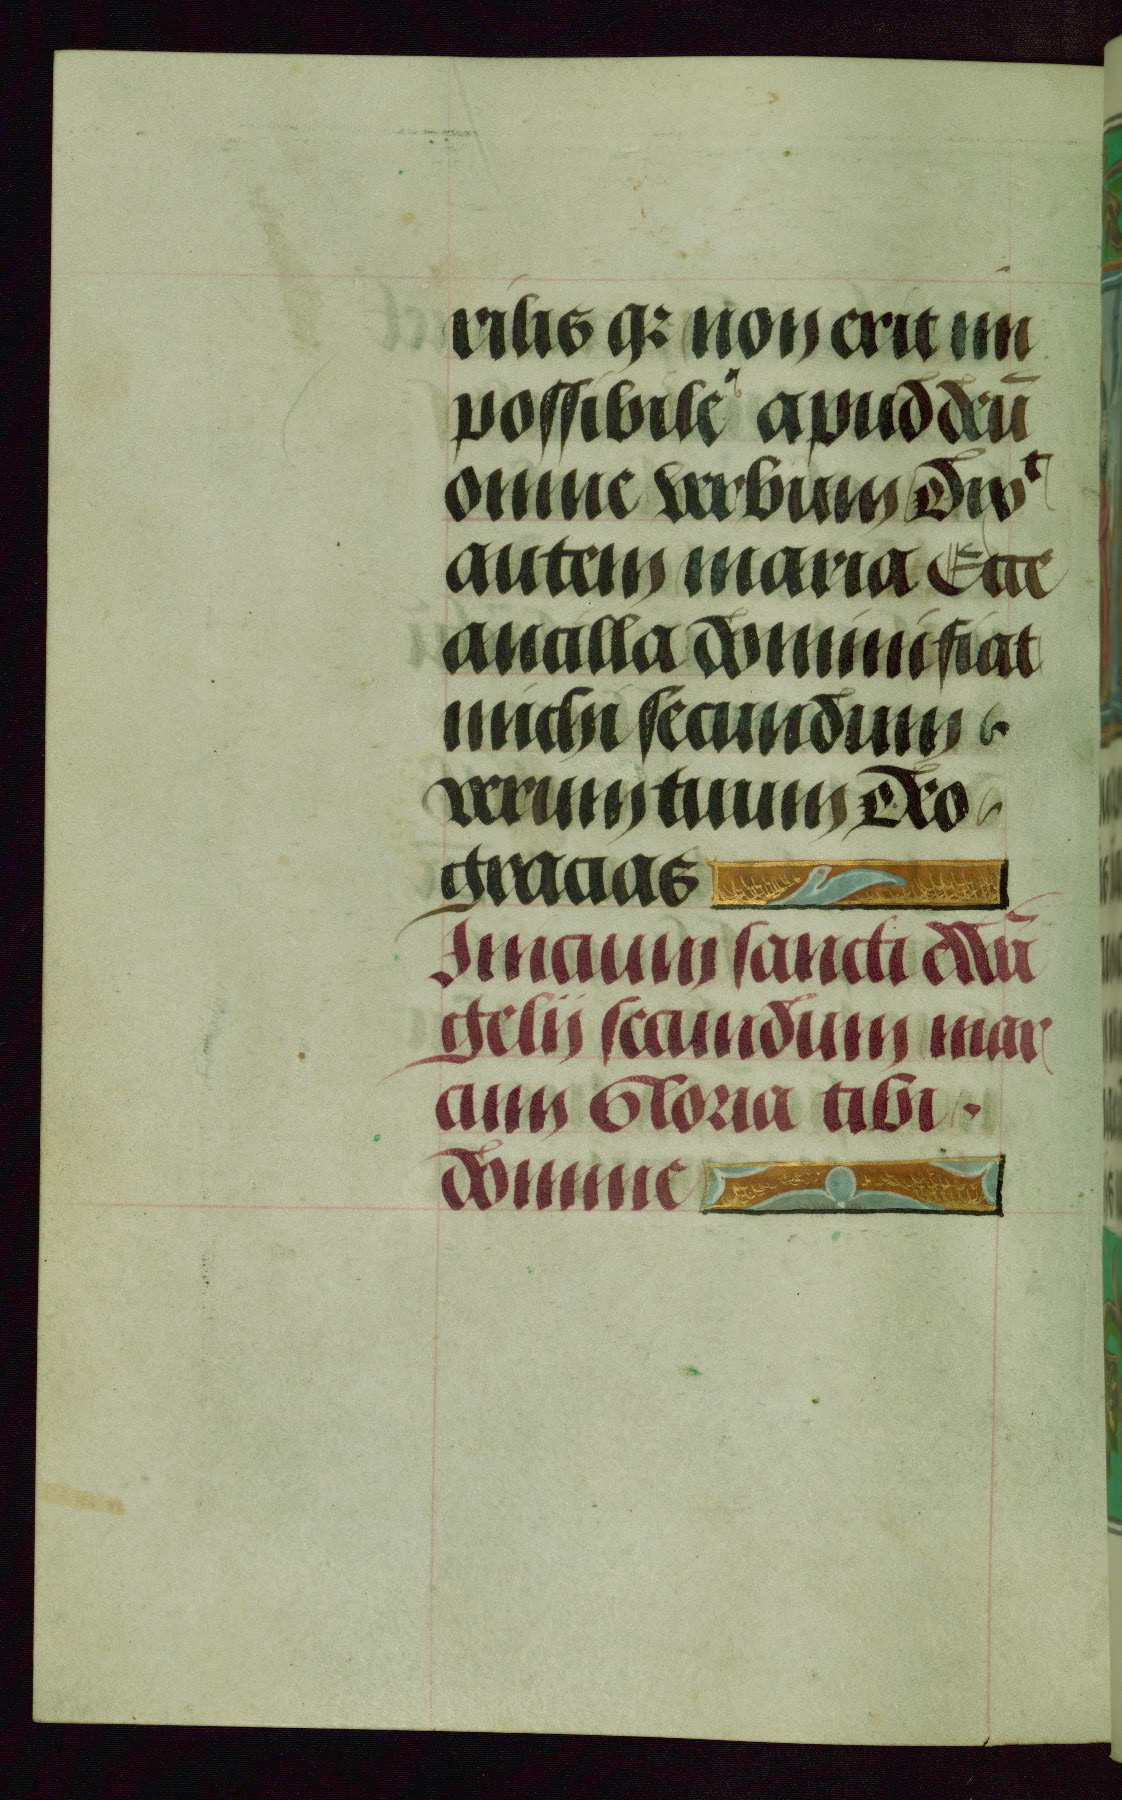 rilis qꝛ non erit im
possibile apud deū
omne verbum Dixᵗ
autem maria Ecce
ancilla domini fiat
michi secundum
verum tuum Deo
gracias
Inicium sancti ewā
gelij secundum mar
cum Gloria tibi
domine